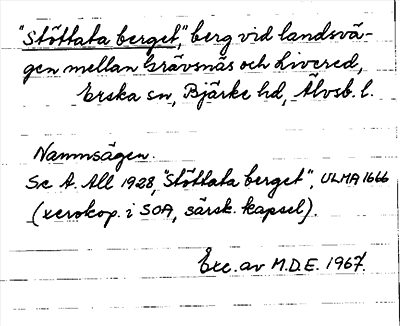 "Stöttata berget", berg vid landsvä-
gen mellan Grävsnäs och Livered,
Erska sn, Bjärke hd, Älvsb. l.
Namnsägen.
Se A. All 1928, "Stöttata berget", ULMA 1666
(xerokop. i SOA, särsk. kapsel).
Exc. av M.D.E. 1967.